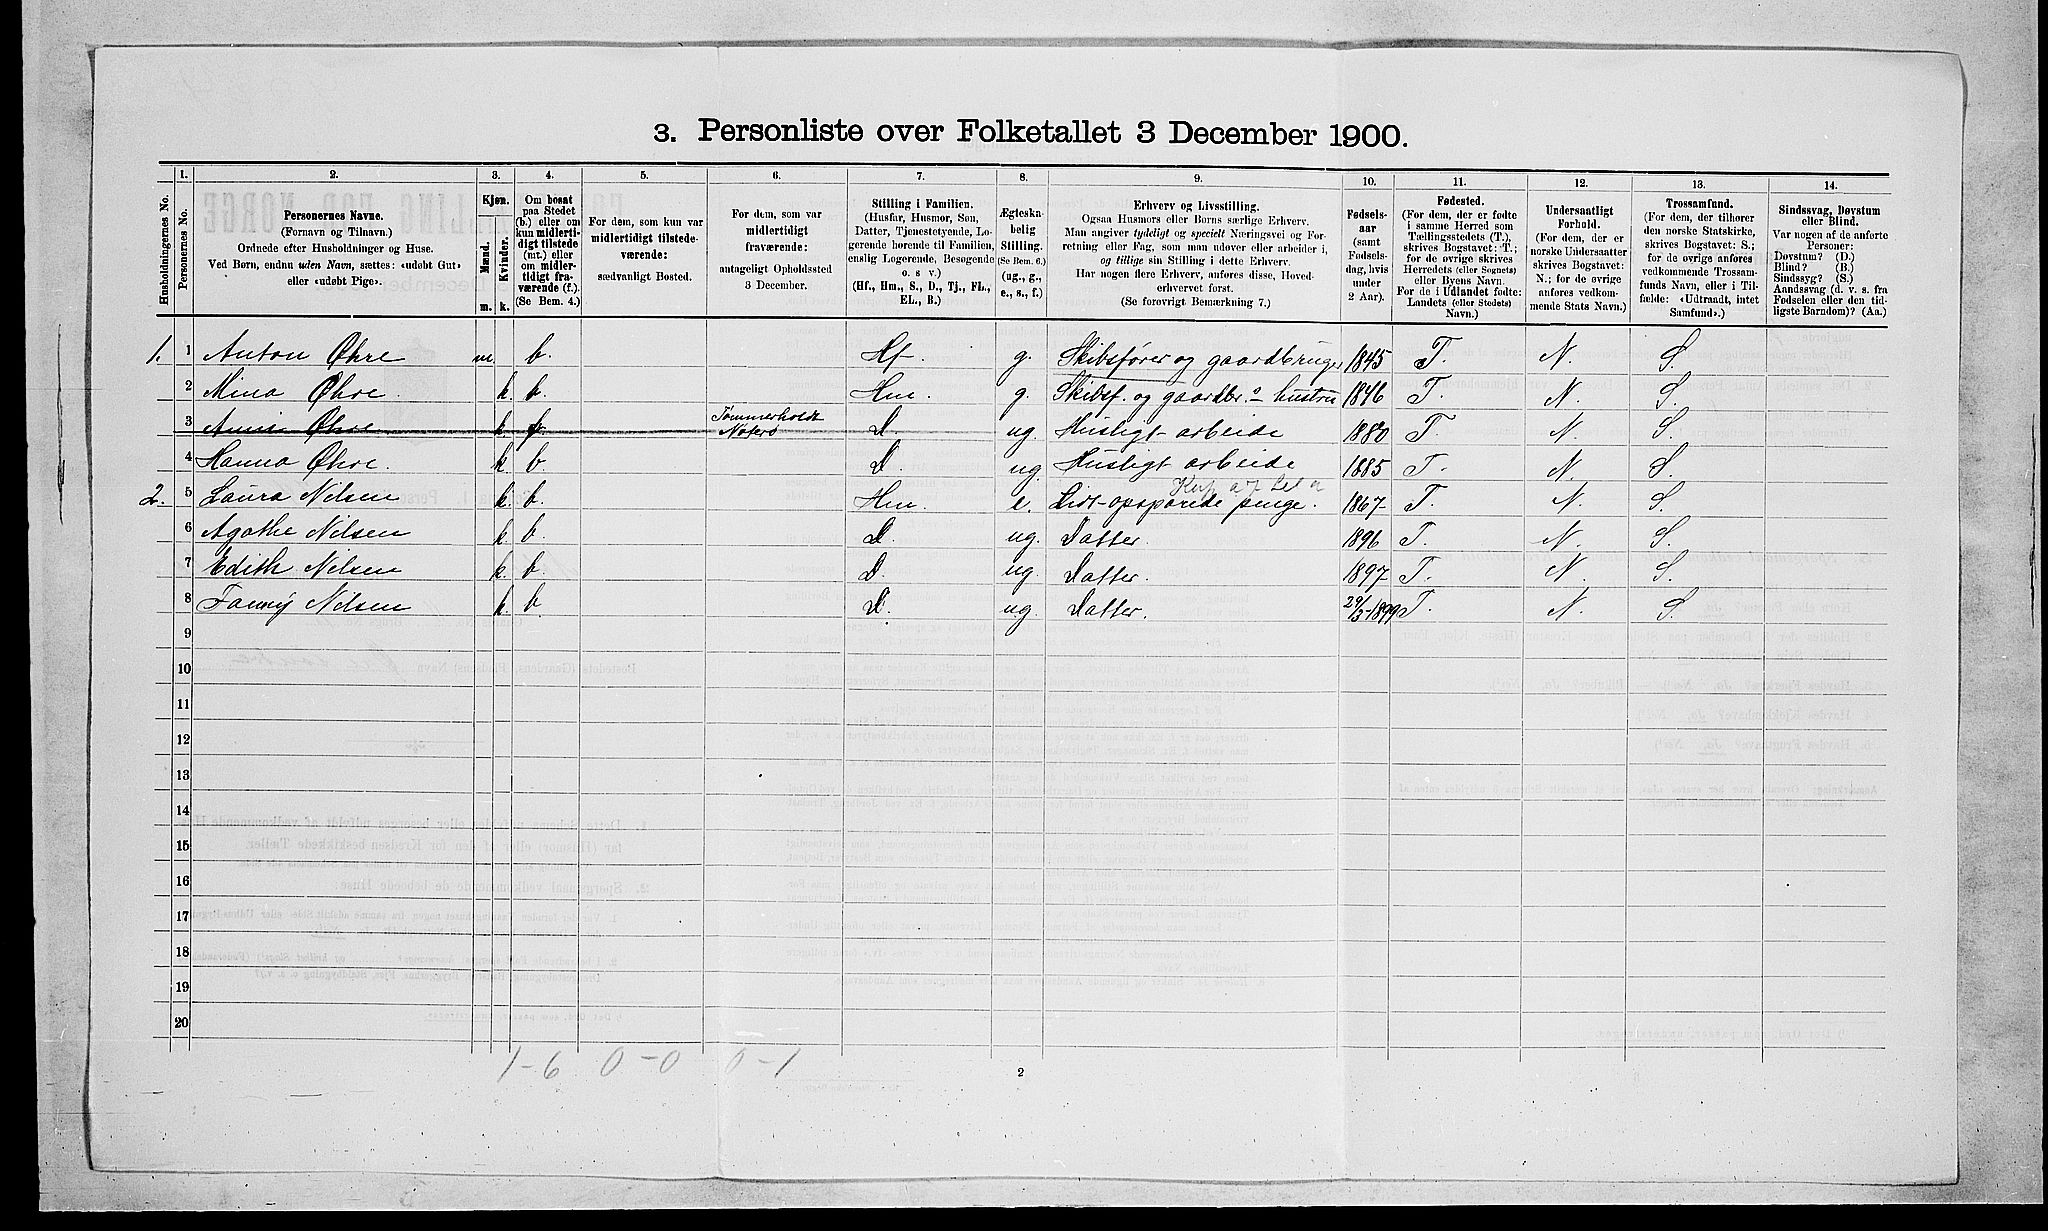 3. Personliste over Folketallet 3 December 1900.
Husholdningernes No.
1. Personernes No.
2. Personernes Navne.
(Fornavn og Tilnavn.)
Ordnede efter Husholdninger og Huse.
Ved Børn, endnu uden Navn, sættes: «udøbt Gut»
eller «udøbt Pige».
3. Kjøn.
Mænd. Kvinder.
m. k.
4. Om bosat
paa Stedet
(b.) eller om
kun midlerti-
digt tilstede
(mt.) eller
om midler-
tidigt fra-
værende (f.).
(Se Bem. 4.)
5. For dem, som kun var
midlertidigt tilstede-
værende:
sædvanligt Bosted.
6. For dem, som var
midlertidigt
fraværende:
antageligt Opholdssted
3 December.
7. Stilling i Familien.
(Husfar, Husmor, Søn,
Datter, Tjenestetyende, Lo-
gerende hørende til Familien,
enslig Logerende, Besøgende
o. s v.)
(Hf., Hm., S., D., Tj., FL.,
EL., B.)
8. Ægteska-
belig
Stilling.
(Se Bem. 6.)
(ug., g.,
e., s., f.)
9. Erhverv og Livsstilling.
Ogsaa Husmors eller Børns særlige Erhverv.
Man angiver tydeligt og specielt Næringsvei og For-
retning eller Fag, som man udøver eller arbeider i,
og tillige sin Stilling i dette Erhverv.
Har nogen flere Erhverv, anføres disse, Hoved-
erhvervet først.
(Se forøvrigt Bemærkning 7.)
10. Fødsels-
aar
(samt
Fødsels-
dag, hvis
under
2 Aar).
11. Fødested.
(For dem, der er fødte
i samme Herred som
Tællingsstedets (T.),
skrives Bogstavet: T.;
for de øvrige skrives
Herredets (eller Sognets)
eller Byens Navn.
For de i Udlandet fødte:
Landets (eller Stedets)
Navn.)
12. Undersaatligt
Forhold.
(For dem, der er
norske Undersaatter
skrives Bogstavet:
N.; for de øvrige
anføres vedkom-
mende Stats Navn.)
13. Trossamfund.
(For dem, der tilhører
den norske Statskirke,
skrives Bogstavet: S.;
for de øvrige anføres
vedkommende Trossam-
funds Navn, eller i Til-
fælde: «Udtraadt, intet
Samfund».)
14. Sindssvag, Døvstum
eller Blind.
Var nogen af de anførte
Personer:
Døvstum? (D.)
Blind? (B.)
Sindssyg? (S.)
Aandssvag (d. v. s. fra
Fødselen eller den tid-
ligste Barndom)? (Aa.)
1. 1 Anton Øhre m. b. Hf. g. Skibsfører og gaardbruger 1845 T. N. S.
2 Mina Øhre. k. b. Hm. g. Skibsf. og gaardbr.s hustru 1846 T. N. S.
3 Øhre k. f. Tømmerholdt Nøterø D. ug. Husligt arbeide 1880 T. N. S.
4 Hanna Øhre. k. b D. ug. Husligt arbeide 1885 T. N. S.
2. 5 Laura Nilsen k. b. Hm. e. opsparede penge. 1867 T. N. S.
6 Agathe Nilsen k. b. D. ug. Datter. 1896 T. N. S.
7 Edith Nilsen k. b. D. ug. Datter. 1897 T. N. S.
8 Fanny Nilsen k. b D. ug. Datter. 1899 T. N. S.
9
10
11
12
13
14
15
16
17
18
19
20
1-6 0-0 0-1
2